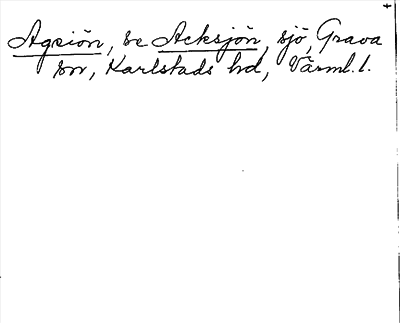 Agsiön, se Acksjön, sjö, Grava
sn, Karlstads hd, Värml. l.